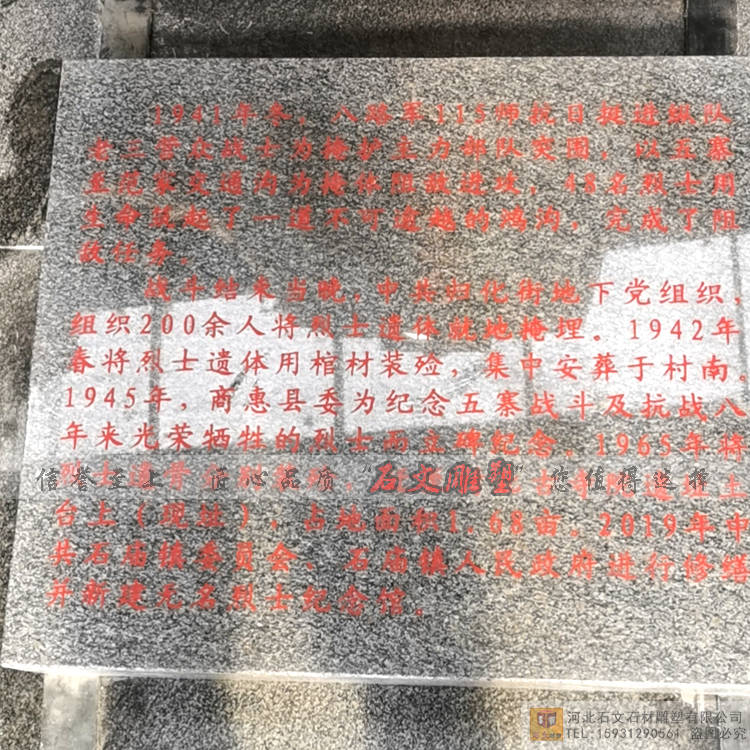 1941年冬，八路军115师抗日挺进纵队
老三营众战士为掩护主力部队突围，以五寨
至范家交通沟为掩体阻敌进攻，48名烈士用
生命筑起了一道不可逾越的鸿沟，完成了阻
敌任务。
战斗结束当晚，中共归化街地下党组织，
组织200余人将烈士遗体就地掩埋。1942年
春将烈士遗体用棺材装殓，集中安葬于村南。
1945年，商惠县委为纪念五寨战斗及抗战八
年来光荣牺牲的烈士而立碑纪念，1965年将
烈士遗骨
信誉至上 匠心品质 "石文雕塑" 您值得选择
台上（现址），占地面积1.68亩。2019年中
共石庙镇委员会、石庙镇人民政府进行修缮
并新建无名烈士纪念馆。
河北石文石材雕塑有限公司
TEL:15931290561 盗图必究